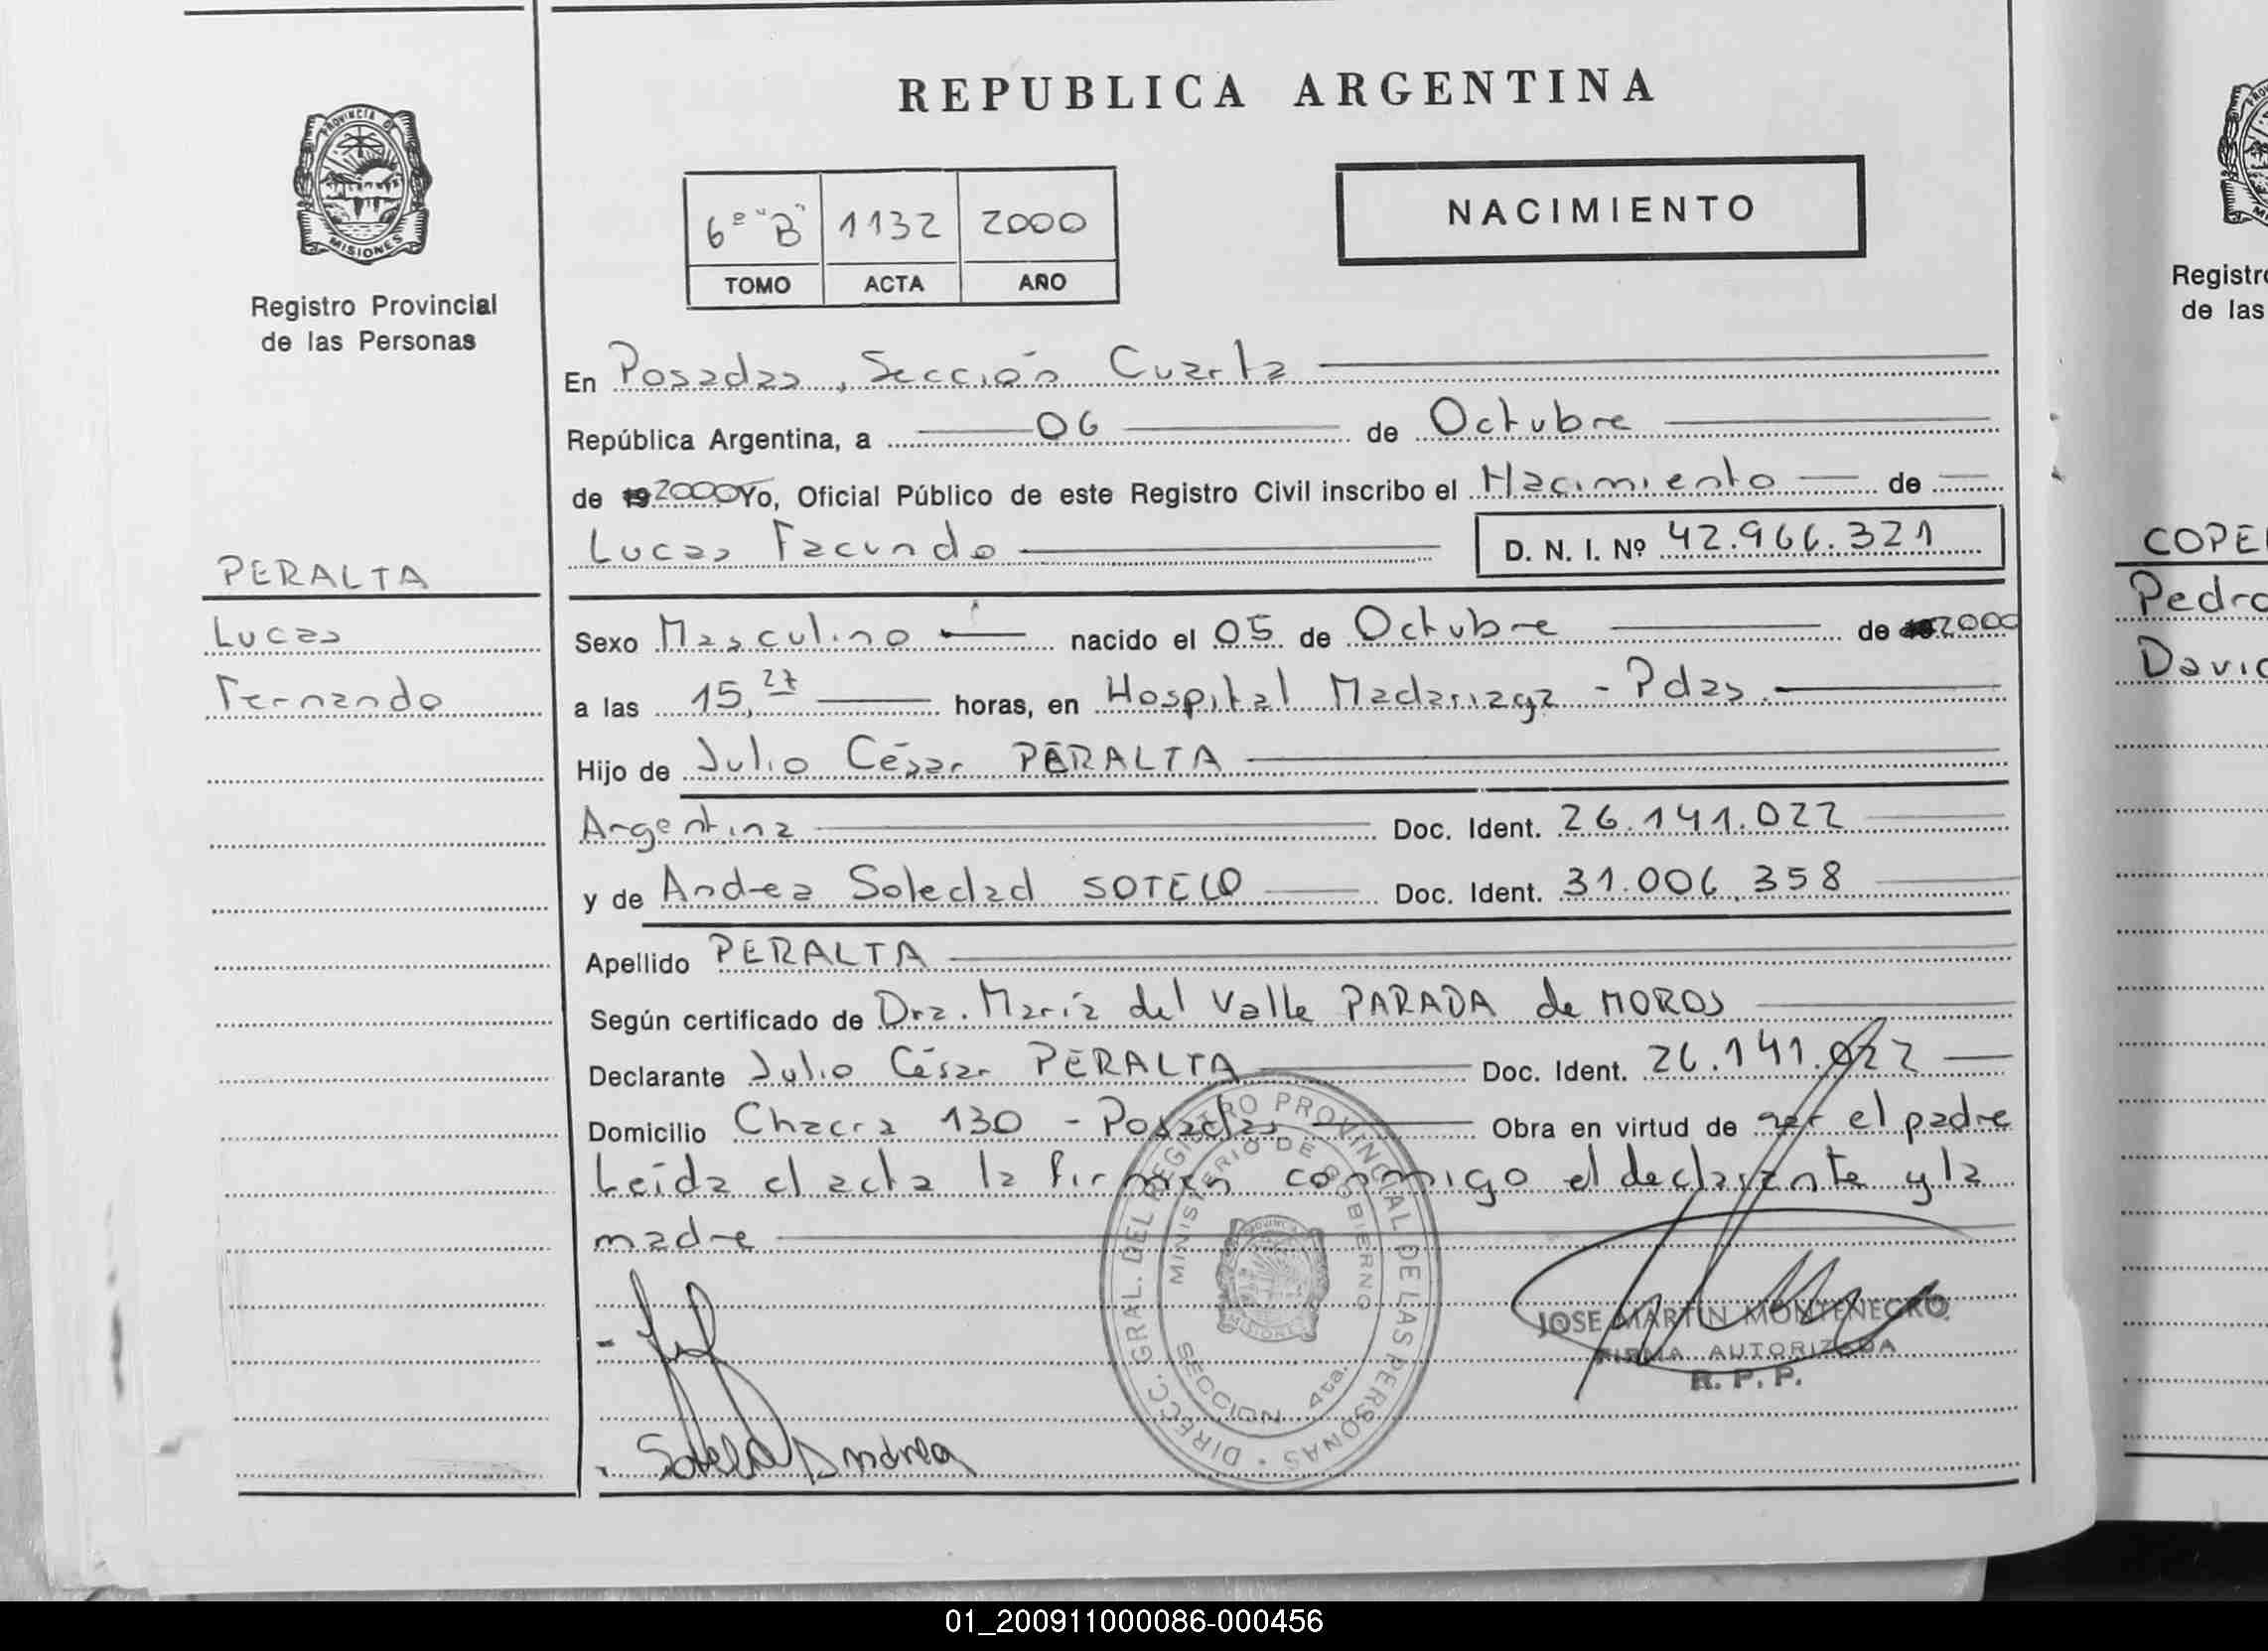 REPUBLICA ARGENTINA
PROVINCIA D
MISIONES
Registro Provincial
de las Personas
6º "B" 1132 2000
TOMO ACTA AÑO
NACIMIENTO
En Posadas, Sección Cuarta
República Argentina, a 06 de Octubre
de 19 2000 Yo, Oficial Público de este Registro Civil inscribo el Nacimiento de
Lucas Facundo D. N. I. Nº 42.966.321
PERALTA
Lucas
Fernando
Sexo Masculino nacido el 05 de Octubre de 2000
a las 15,27 horas, en Hospital Madariaga - Pdas.
Hijo de Julio César PERALTA
Argentina Doc. Ident. 26.141.022
y de Andrea Soledad SOTELO Doc. Ident. 31.006.358
Apellido PERALTA
Según certificado de Dra. María del Valle PARADA de MOROS
Declarante Julio César PERALTA Doc. Ident. 26.141.022
Domicilio Chacra 130 - Posadas Obra en virtud de ser el padre
Leída el acta la firman conmigo el declarante y la
madre
DIRECC. GRAL. DEL REGISTRO PROVINCIAL DE LAS PERSONAS
MINISTERIO DE GOBIERNO
SECCION 4ta.
MISIONES
JOSE MARTIN MONTENEGRO
FIRMA AUTORIZADA
R. P. P.
Sotelo Andrea
Registr
de las
COPE
Pedro
David
01_200911000086-000456